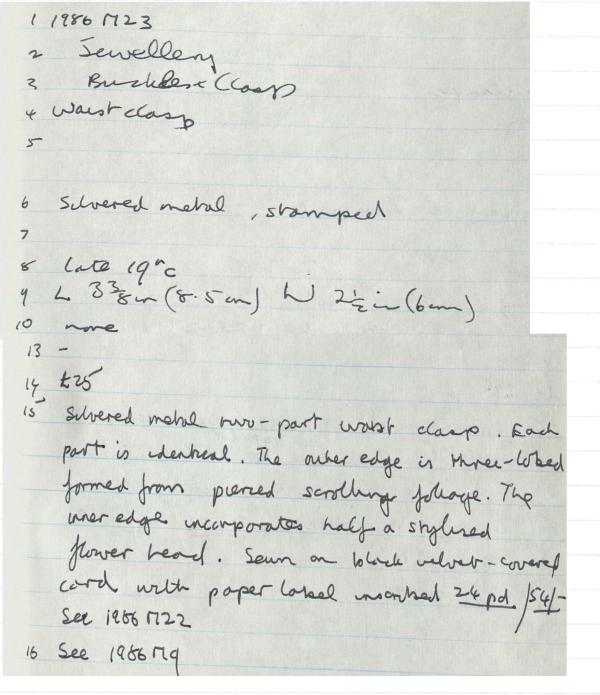 1 1986 M23
2 Jewellery
3 Buckles & Clasp
4 Waist clasp
5
6 Silvered metal, stamped
7
8 Late 19th c
9 L 3 3/8 in (8.5 cm) W 2 1/2 in (6cm)
10 none
13 -
14 £25
15 Silvered metal two-part waist clasp. Each
part is identical. The outer edge is three-lobed
formed from pierced scrolling foliage. The
inner edge incorporates half a stylised
flower head. Sewn on black velvet-covered
card with paper label inscribed 24 pd / 54/-
See 1986 M22
16 See 1986 M9